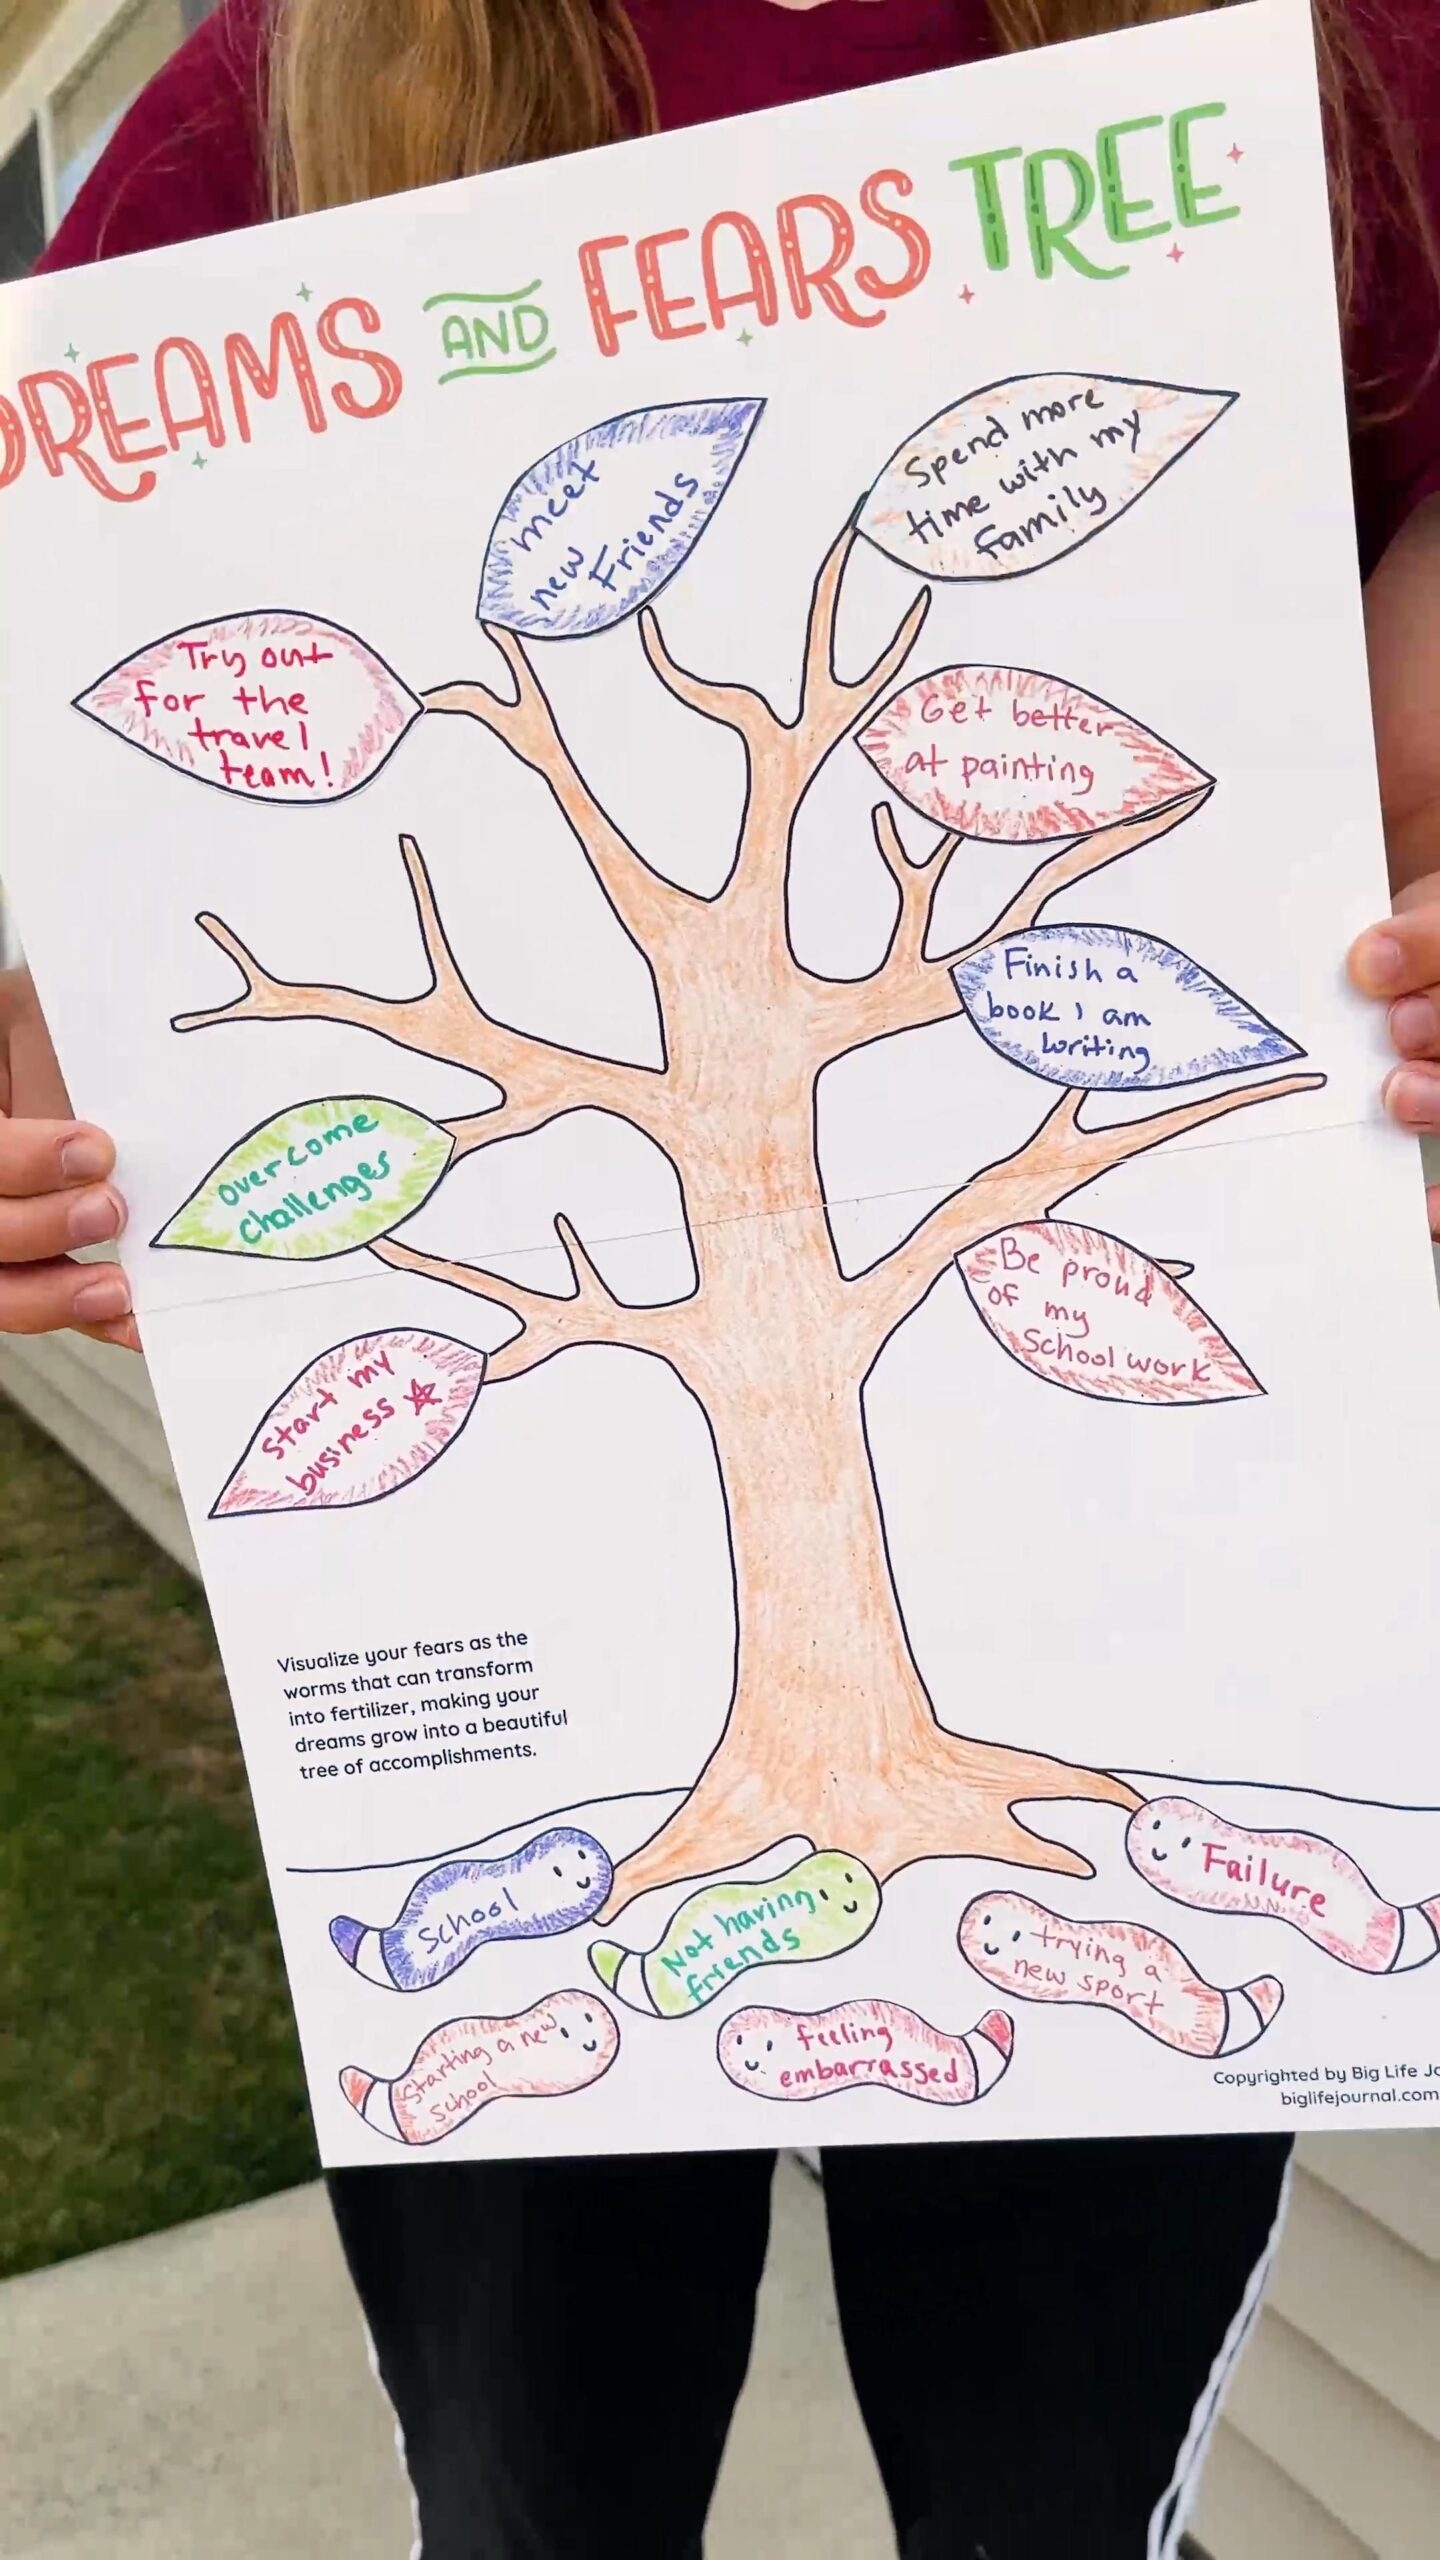 DREAMS AND FEARS TREE
meet
new
Friends
Spend more
time with my
family
Try out
for the
travel
team!
Get better
at painting
Finish a
book I am
writing
overcome
challenges
Be proud
of my
School work
Start my
business
Visualize your fears as the
worms that can transform
into fertilizer, making your
dreams grow into a beautiful
tree of accomplishments.
School
Not having
friends
Failure
trying a
new sport
Starting a new
school
feeling
embarrassed
Copyrighted by Big Life
biglifejournal.com